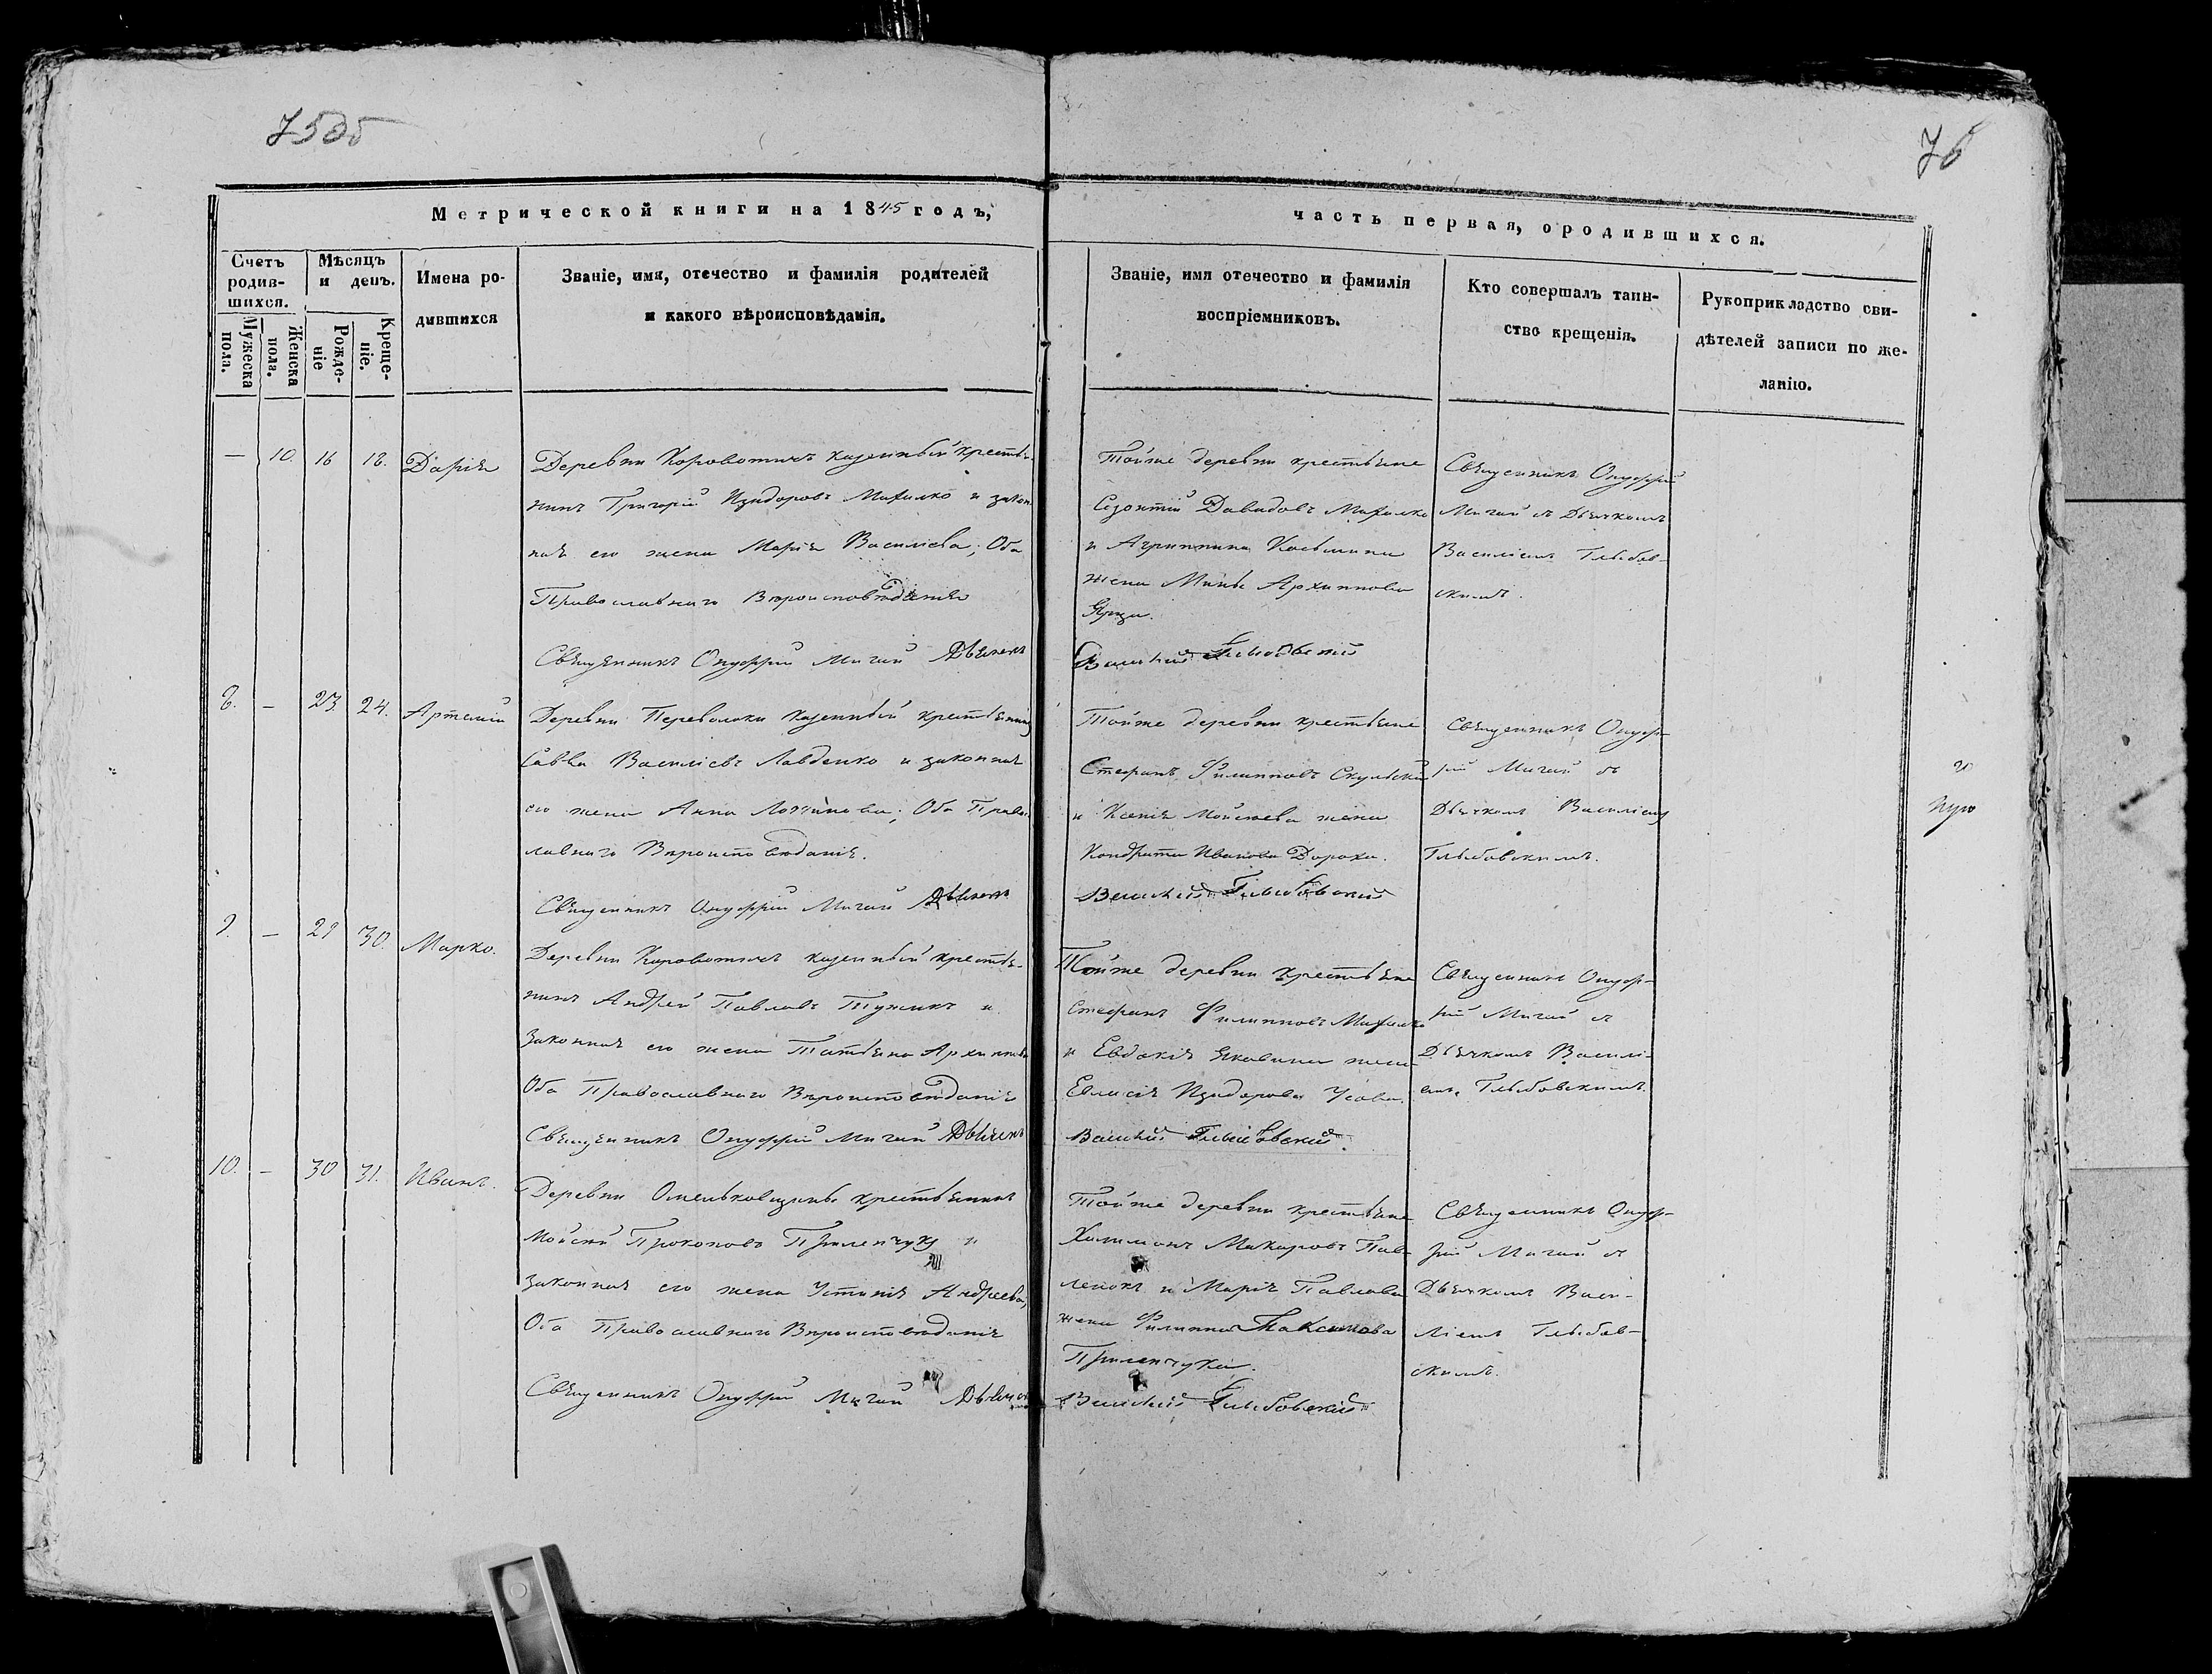 75об
76
Метрической книги на 1845 годъ,
часть первая, о родившихся.
Счетъ родив-шихся.
Мужеска пола.
Женска пола.
Мѣсяцъ и день.
Рожде-ніе
Креще-ніе.
Имена ро-
дившихся
Званіе, имя, отечество и фамилія родителей
и какого вѣроисповѣданія.
Званіе, имя отечество и фамилія
воспріемниковъ.
Кто совершалъ таин-
ство крещенія.
Рукоприкладство сви-
дѣтелей записи по же-
ланію.
— 10. 16 18. Дарія
Деревни Коровотичъ казенный крестья-
нинъ Григорій Изидоровъ Михалко и закон-
ная его жена Марія Василіева; Оба
Православнаго Вѣроисповѣданія
Священникъ Онуфрій Мигай Дьячекъ
Тойже деревни крестьяне
Созонтій Давидовъ Михалко
и Агриппина Косьмина
жена Мины Архиппова
Василий Глыбовский
Священникъ Онуфрій
Мигай съ Дьячкомъ
Василіемъ Глыбов-
скимъ.
8. — 23. 24. Артемій
Деревни Переволоки казенный крестьянинъ
Савва Василіевъ Лавденко и законная
его жена Анна Логгинова; Оба Право-
лавнаго Вѣроисповѣданія.
Священникъ Онуфрій Мигай Дьячекъ
Тойже деревни крестьяне
Стефанъ Филипповъ
и Ксенія Мойсеева жена
Кондрата Иванова Дороха.
Василий Глыбовский
Священникъ Онуф-
рій Мигай съ
Дьячкомъ Василіемъ
Глыбовскимъ.
9. — 29 30. Марко.
Деревни Коровотичъ казенный крестья-
нинъ Андрей Павловъ Тужикъ и
законная его жена Татьяна Архиппова
Оба Православнаго Вѣроисповѣданія
Священникъ Онуфрій Мигай Дьячекъ
Тойже деревни крестьяне
Стефанъ Филипповъ Михалко
и Евдокія Яковлева жена
Евлисія Изидорова Усова.
Василий Глыбовский.
Священникъ Онуф-
рій Мигай съ
Дьячкомъ Василі-
емъ Глыбовскимъ.
10. — 30 31. Иванъ.
Деревни Омельковщины крестьянинъ
Мойсей Прокоповъ Прилепчукъ и
законная его жена Устинія Андреева,
Оба Православнаго Вѣроисповѣданія
Священникъ Онуфрій Мигай Дьячекъ
Тойже деревни крестьяне
Халимонъ Макаровъ Пав-
ленокъ и Марія Павлова
жена Филиппа Максимова
Прилепчука.
Василий Глыбовский
Священникъ Онуф-
рій Мигай съ
Дьячкомъ Васи-
ліемъ Глыбов-
скимъ.